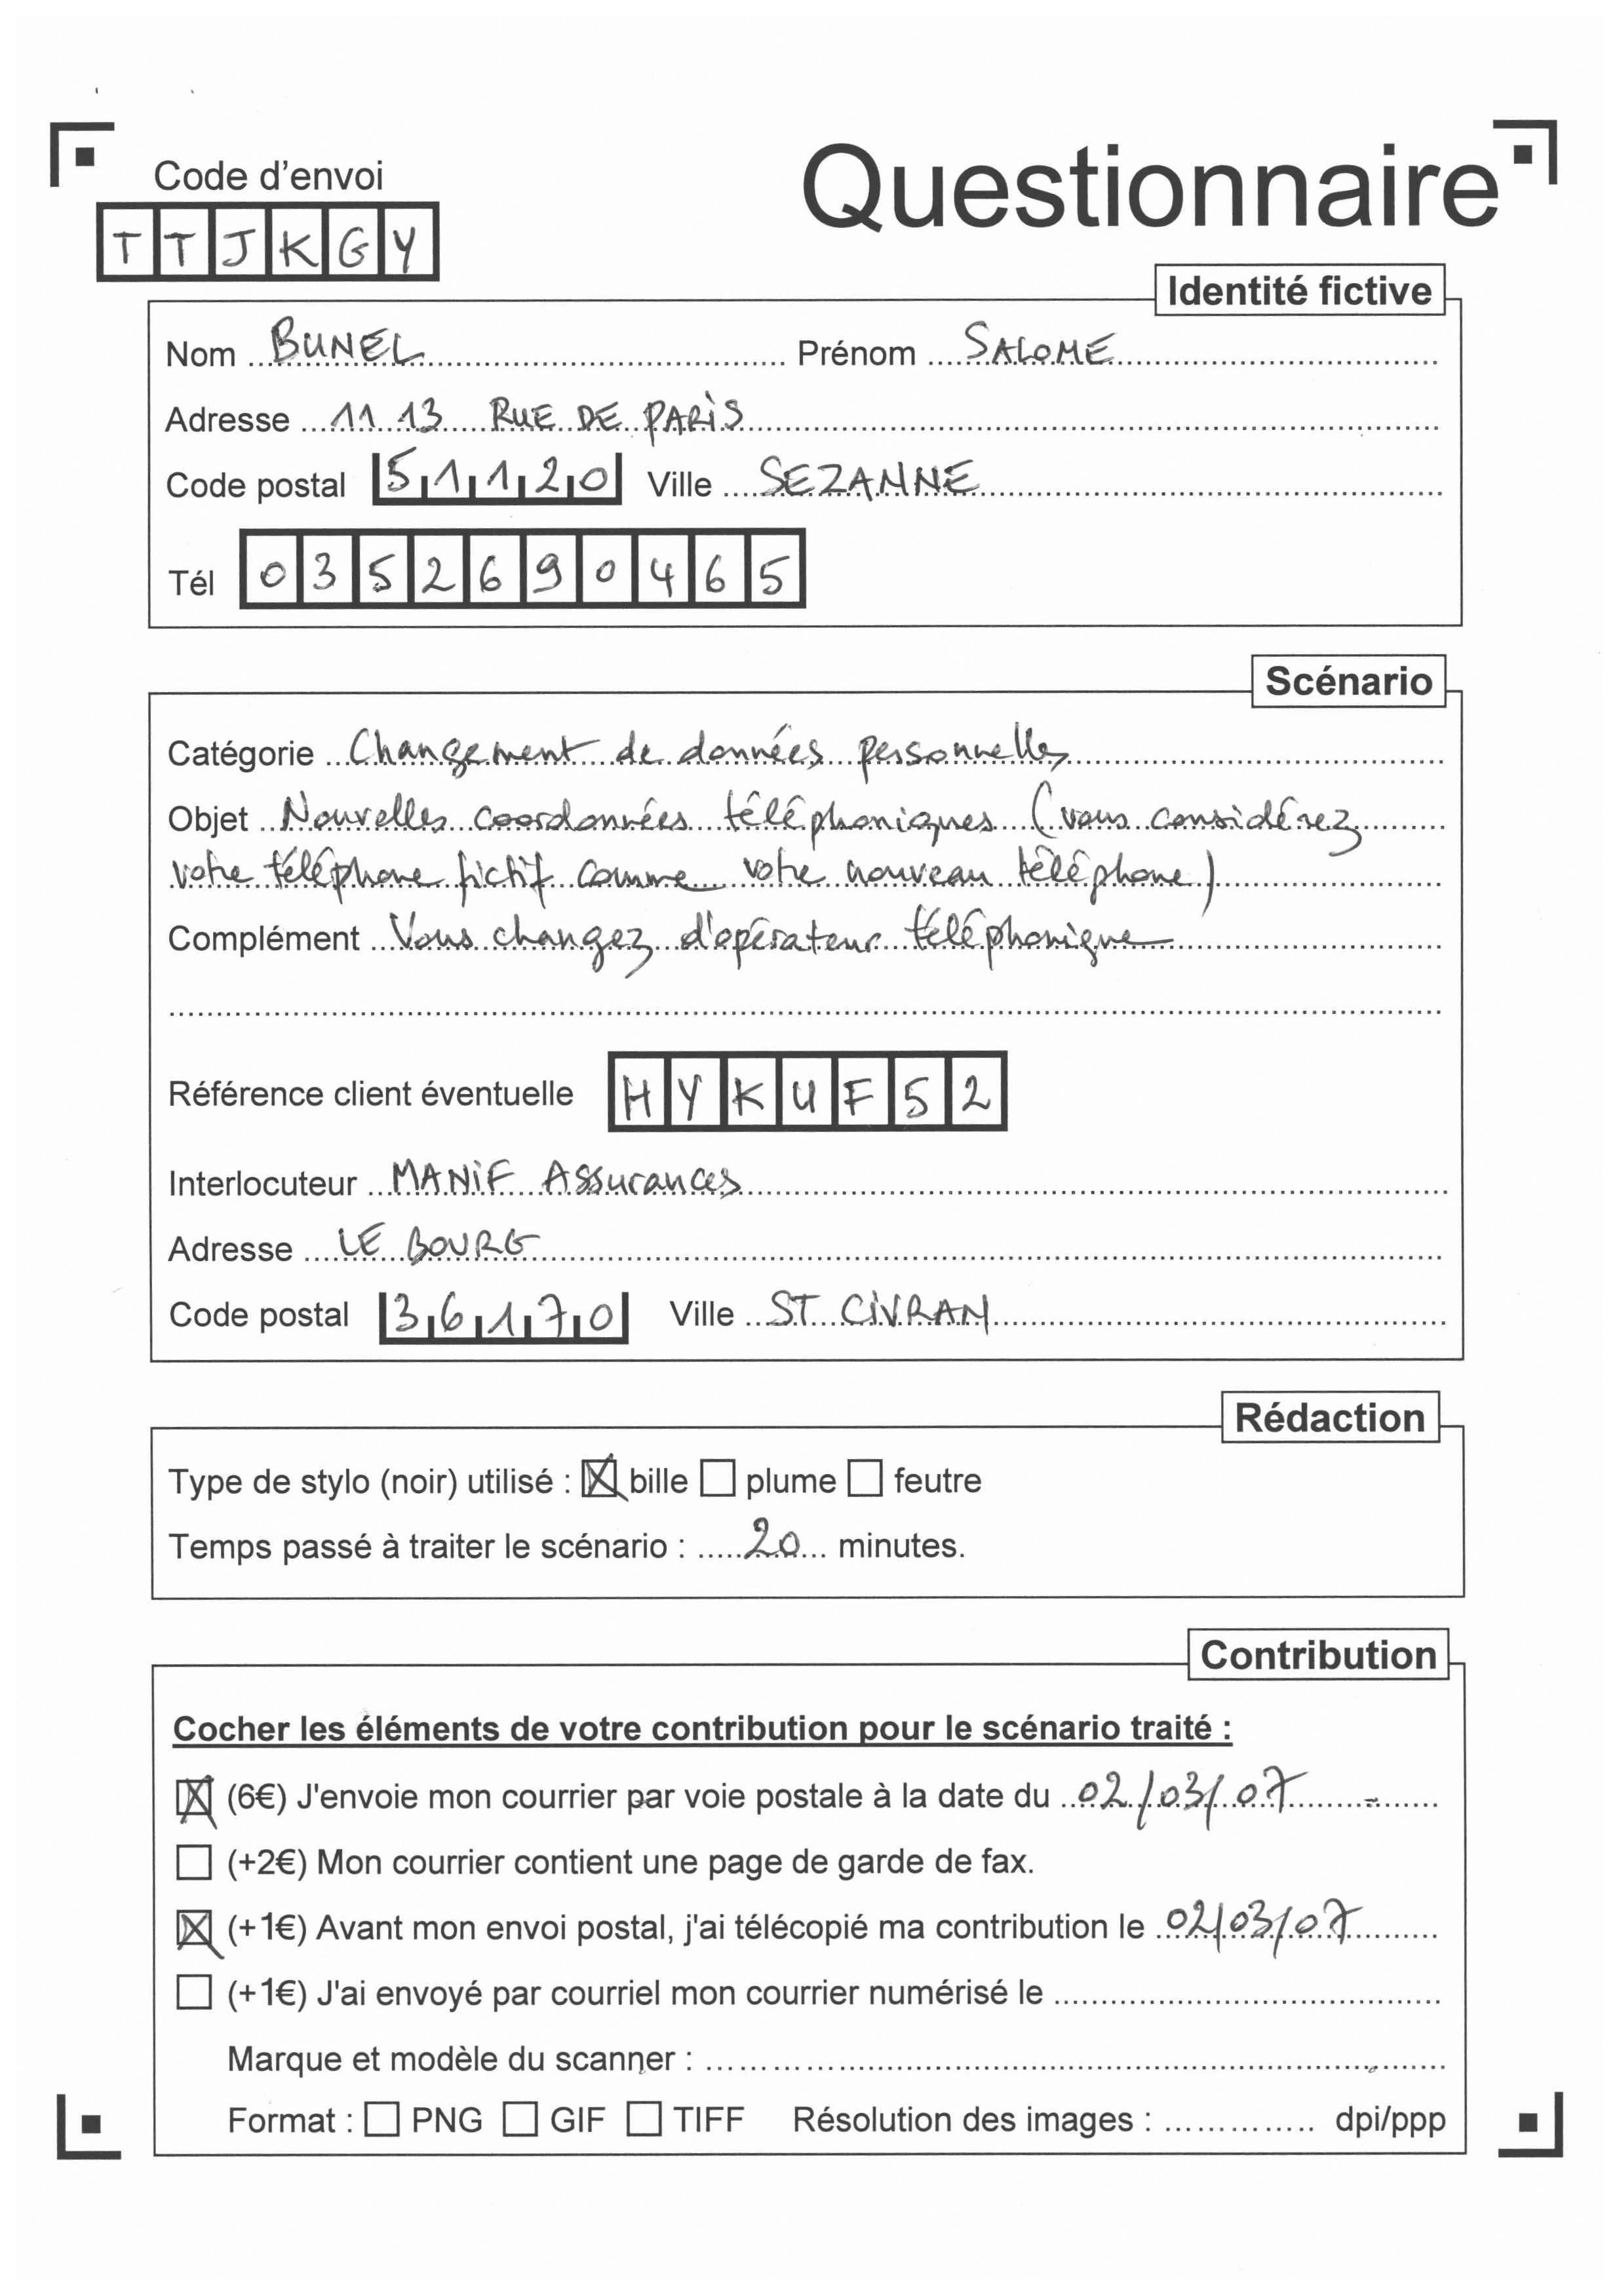 Code d'envoi
Questionnaire
TTJKGY
Identité fictive
Nom BUNEL Prénom SALOME
Adresse 11 13 RUE DE PARIS
Code postal 51120 Ville SEZANNE
Tél 0352690465
Scénario
Catégorie Changement de données personnelles
Objet Nouvelles coordonnées téléphoniques (vous considérez
votre téléphone fictif comme votre nouveau téléphone)
Complément Vous changez d'opérateur téléphonique
Référence client éventuelle HYKUF52
Interlocuteur MANIF Assurances
Adresse LE BOURG
Code postal 36170 Ville ST CIVRAN
Rédaction
Type de stylo (noir) utilisé : ☒ bille ☐ plume ☐ feutre
Temps passé à traiter le scénario : 20 minutes.
Contribution
Cocher les éléments de votre contribution pour le scénario traité :
☒ (6€) J'envoie mon courrier par voie postale à la date du 02/03/07
☐ (+2€) Mon courrier contient une page de garde de fax.
☒ (+1€) Avant mon envoi postal, j'ai télécopié ma contribution le 02/03/07
☐ (+1€) J'ai envoyé par courriel mon courrier numérisé le
Marque et modèle du scanner :
Format : ☐ PNG ☐ GIF ☐ TIFF Résolution des images : dpi/ppp